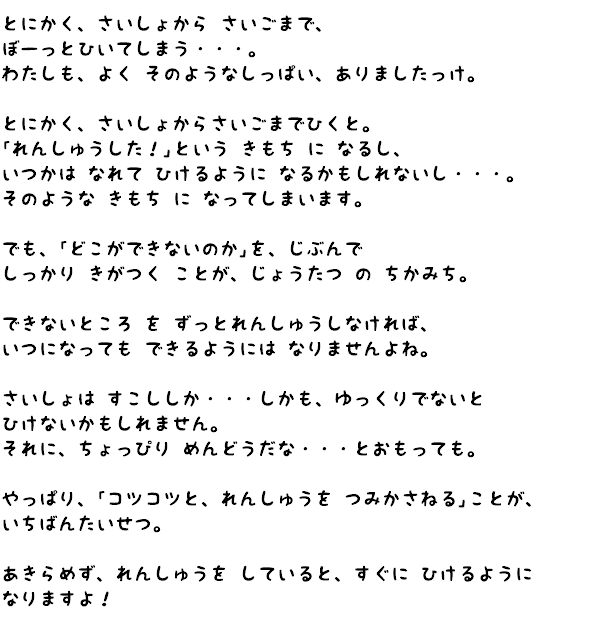 とにかく、さいしょから さいごまで、
ぼーっとひいてしまう・・・。
わたしも、よく そのようなしっぱい、ありましたっけ。
とにかく、さいしょからさいごまでひくと。
「れんしゅうした！」という きもち に なるし、
いつかは なれて ひけるように なるかもしれないし・・・。
そのような きもち に なってしまいます。
でも、「どこができないのか」を、じぶんで
しっかり きがつく ことが、じょうたつ の ちかみち。
できないところ を ずっとれんしゅうしなければ、
いつになっても できるようには なりませんよね。
さいしょは すこししか・・・しかも、ゆっくりでないと
ひけないかもしれません。
それに、ちょっぴり めんどうだな・・・とおもっても。
やっぱり、「コツコツと、れんしゅうを つみかさねる」ことが、
いちばんたいせつ。
あきらめず、れんしゅうを していると、すぐに ひけるように
なりますよ！